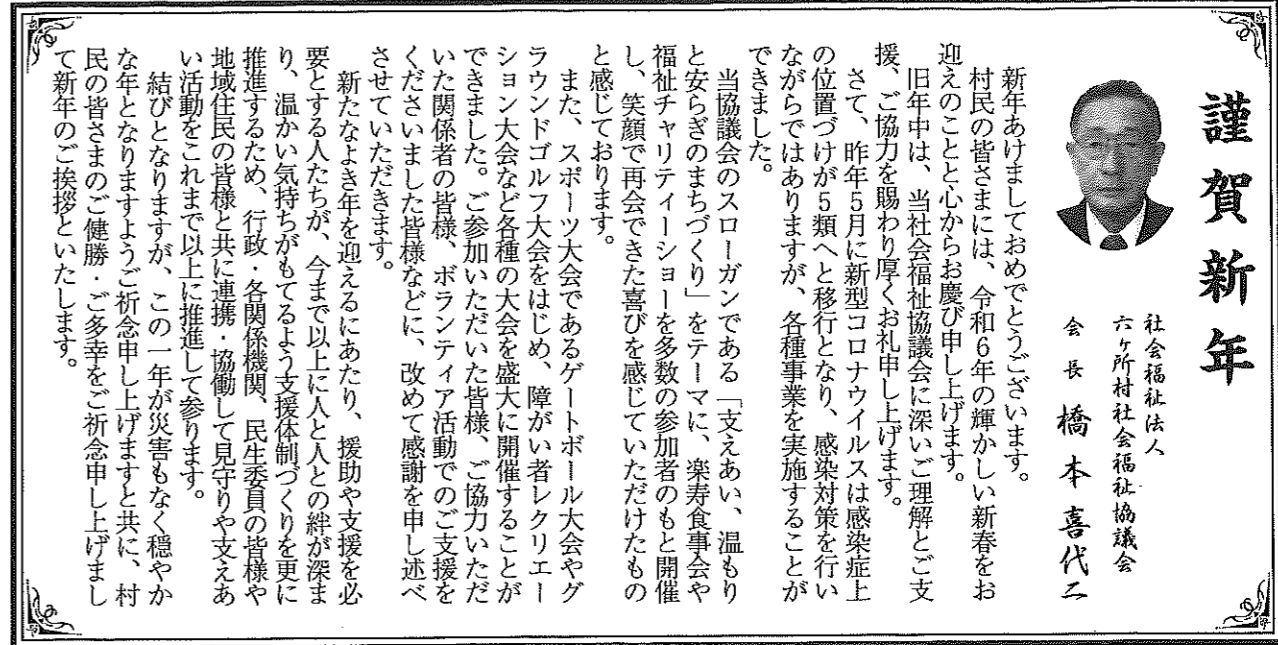 謹賀新年
社会福祉法人
六ヶ所村社会福祉協議会
会長 橋本喜代二
新年あけましておめでとうございます。
村民の皆さまには、令和6年の輝かしい新春をお
迎えのことと心からお慶び申し上げます。
旧年中は、当社会福祉協議会に深いご理解とご支
援、ご協力を賜わり厚くお礼申し上げます。
さて、昨年5月に新型コロナウイルスは感染症上
の位置づけが5類へと移行となり、感染対策を行い
ながらではありますが、各種事業を実施することが
できました。
当協議会のスローガンである「支えあい、温もり
と安らぎのまちづくり」をテーマに、楽寿食事会や
福祉チャリティーショーを多数の参加者のもと開催
し、笑顔で再会できた喜びを感じていただけたもの
と感じております。
また、スポーツ大会であるゲートボール大会やグ
ラウンドゴルフ大会をはじめ、障がい者レクリエー
ション大会など各種の大会を盛大に開催することが
できました。ご参加いただいた皆様、ご協力いただ
いた関係者の皆様、ボランティア活動でのご支援を
くださいました皆様などに、改めて感謝を申し述べ
させていただきます。
新たなよき年を迎えるにあたり、援助や支援を必
要とする人たちが、今まで以上に人と人との絆が深ま
り、温かい気持ちがもてるよう支援体制づくりを更に
推進するため、行政・各関係機関、民生委員の皆様や
地域住民の皆様と共に連携・協働して見守りや支えあ
い活動をこれまで以上に推進して参ります。
結びとなりますが、この一年が災害もなく穏やか
な年となりますようご祈念申し上げますと共に、村
民の皆さまのご健勝・ご多幸をご祈念申し上げまし
て新年のご挨拶といたします。